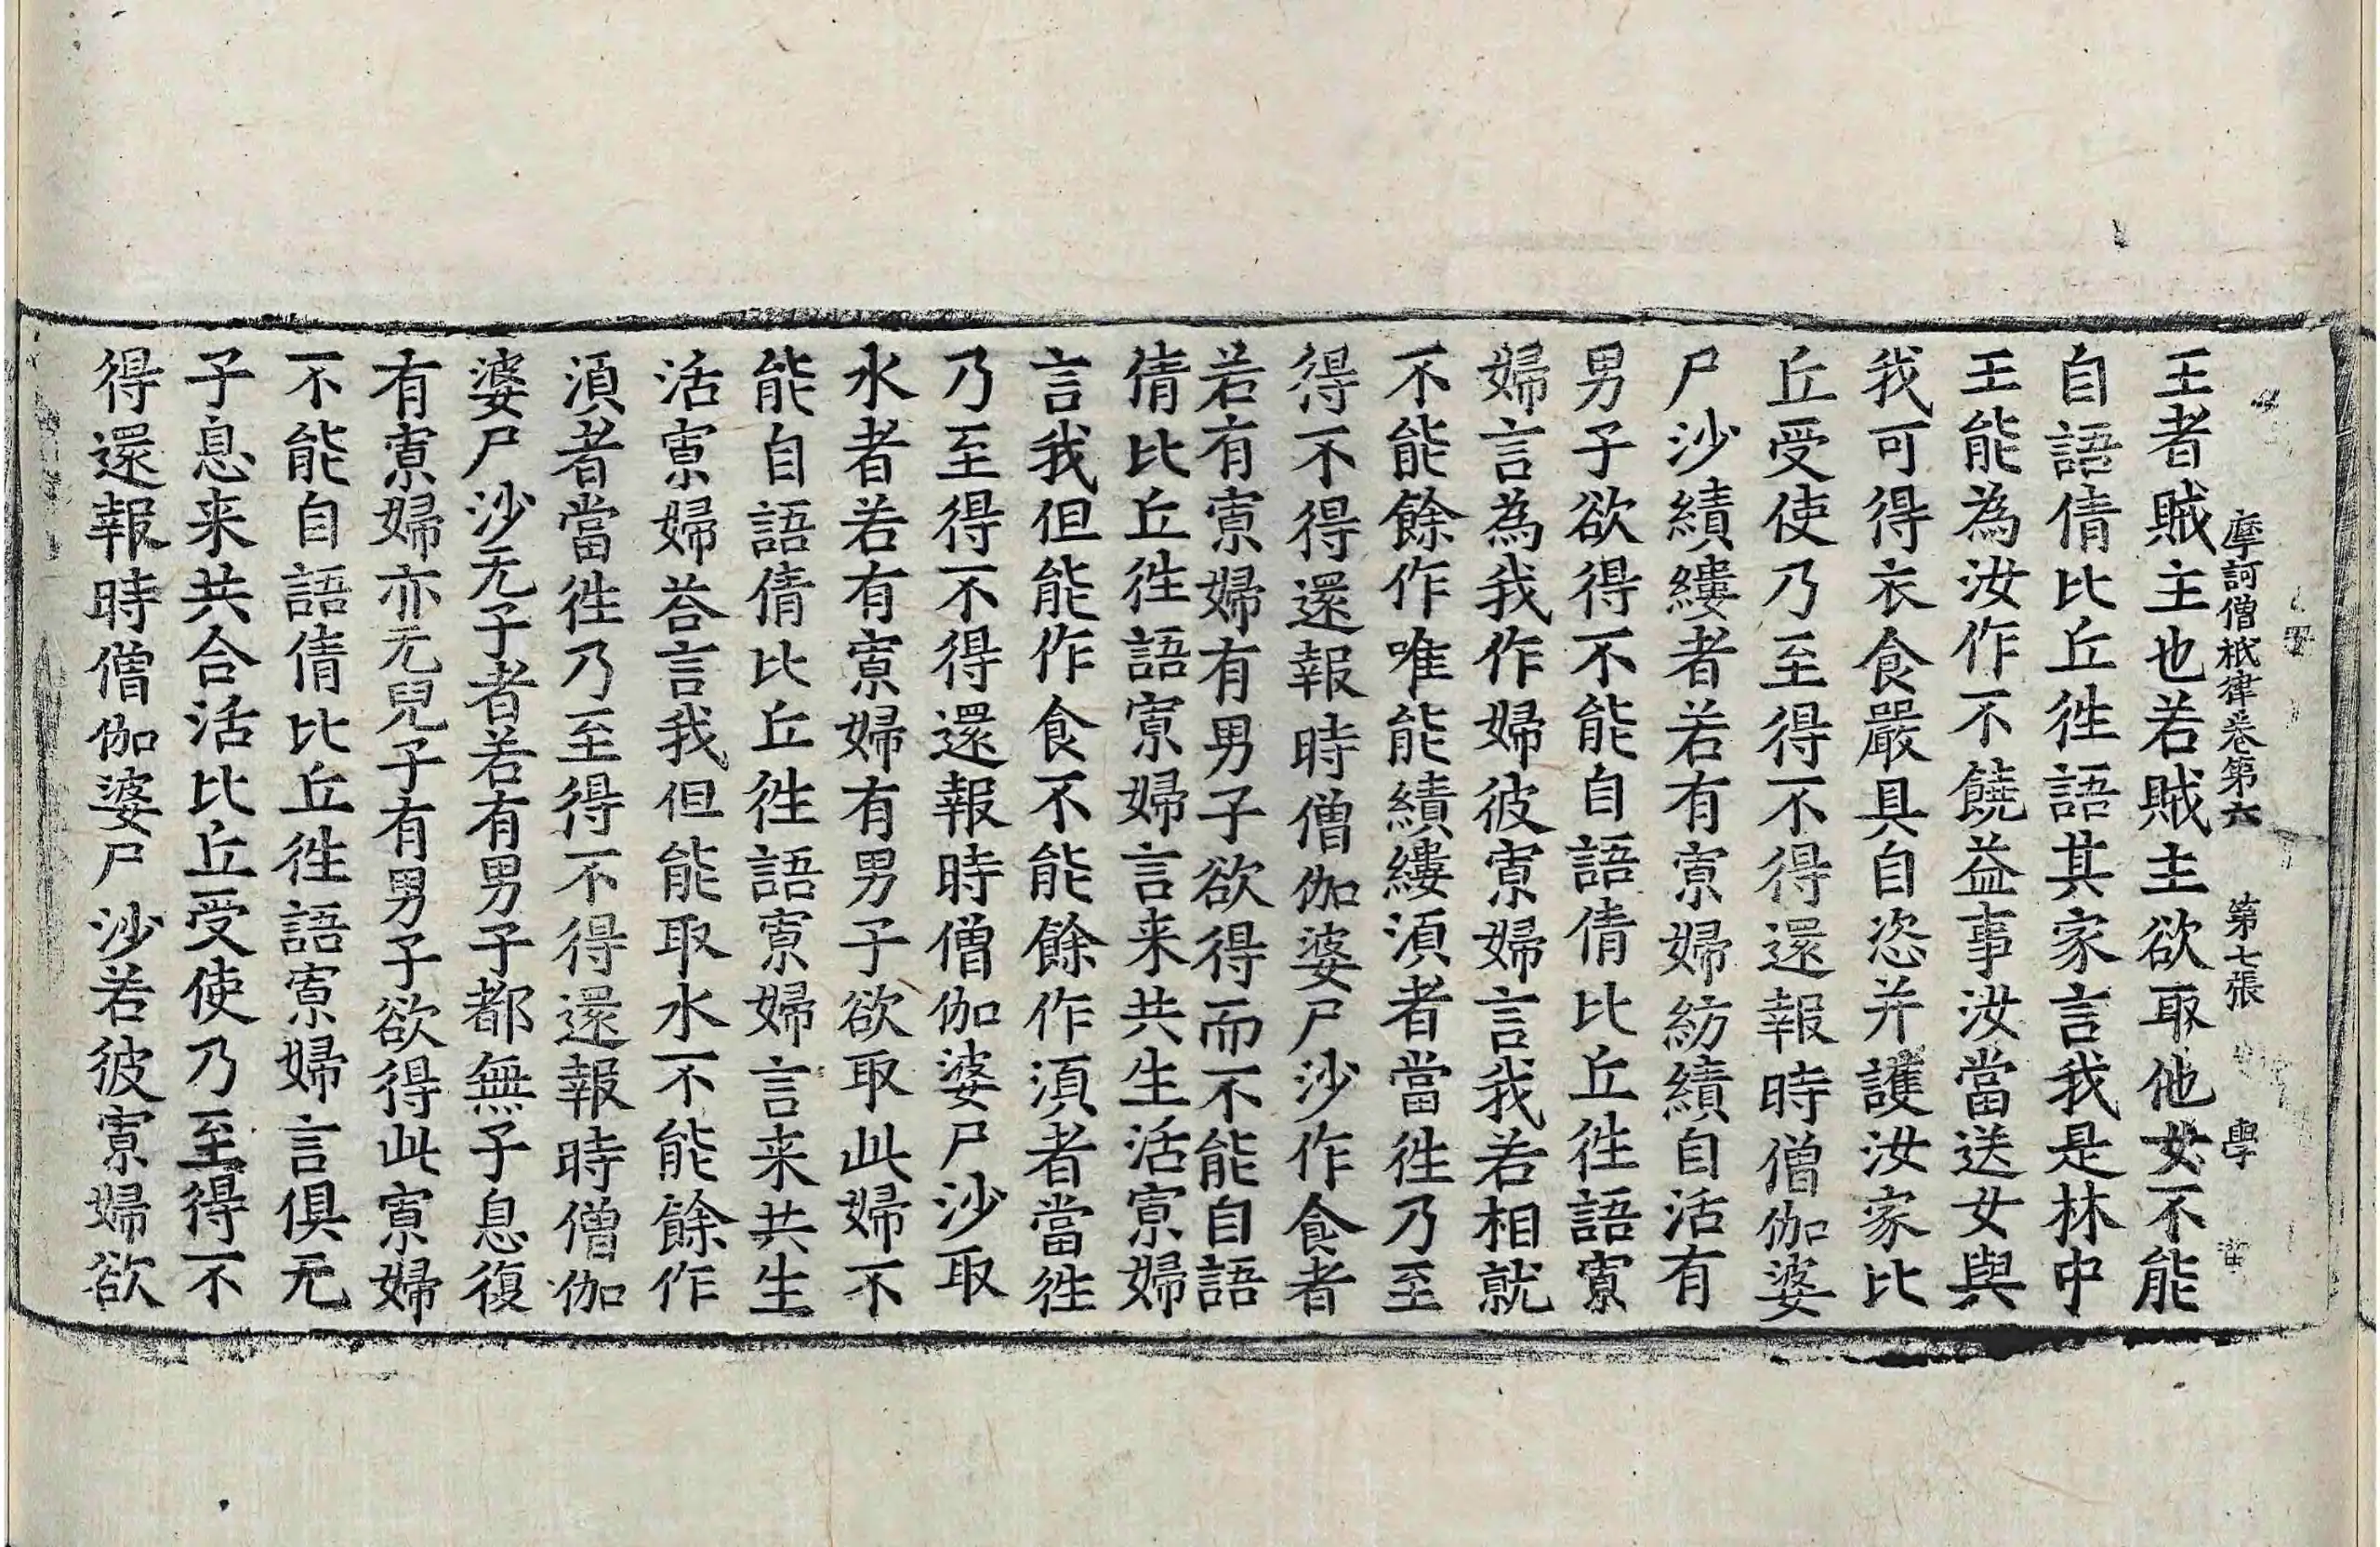 摩訶僧祇律卷第六 第七張 學
王者賊主也若賊主欲取他女不能
自語倩比丘徃語其家言我是林中
王能為汝作不饒益事汝當送女與
我可得衣食嚴具自恣并護汝家比
丘受使乃至得不得還報時僧伽婆
尸沙績縷者若有寡婦紡績自活有
男子欲得不能自語倩比丘徃語寡
婦言為我作婦彼寡婦言我若相就
不能餘作唯能績縷湏者當徃乃至
得不得還報時僧伽婆尸沙作食者
若有寡婦有男子欲得而不能自語
倩比丘徃語寡婦言来共生活寡婦
言我但能作食不能餘作湏者當徃
乃至得不得還報時僧伽婆尸沙取
水者若有寡婦有男子欲取此婦不
能自語倩比丘徃語寡婦言来共生
活寡婦荅言我但能取水不能餘作
湏者當徃乃至得不得還報時僧伽
婆尸沙无子者若有男子都無子息復
有寡婦亦无兒子有男子欲得此寡婦
不能自語倩比丘徃語寡婦言俱无
子息来共合活比丘受使乃至得不
得還報時僧伽婆尸沙若彼寡婦欲